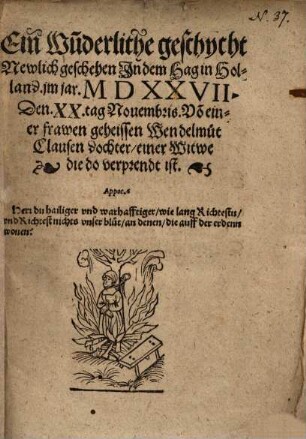 N. 37.
Ein Wůderlithe geschycht
Newlich geschehen Jn dem Hag in Hol-
land. jm jar. M D XXVII
Den. XX. tag Nouembris. Võ ein-
er frawen geheissen Wendelmůt
Clausen dochter/einer Witwe
die do verprendt ist.
Appoc.
Herr du hailiger vnd warhafftiger/wie lang Richtestu/
vnd Richtest nichts vnser blůt/an denen/die auff der erdenn
wonen?